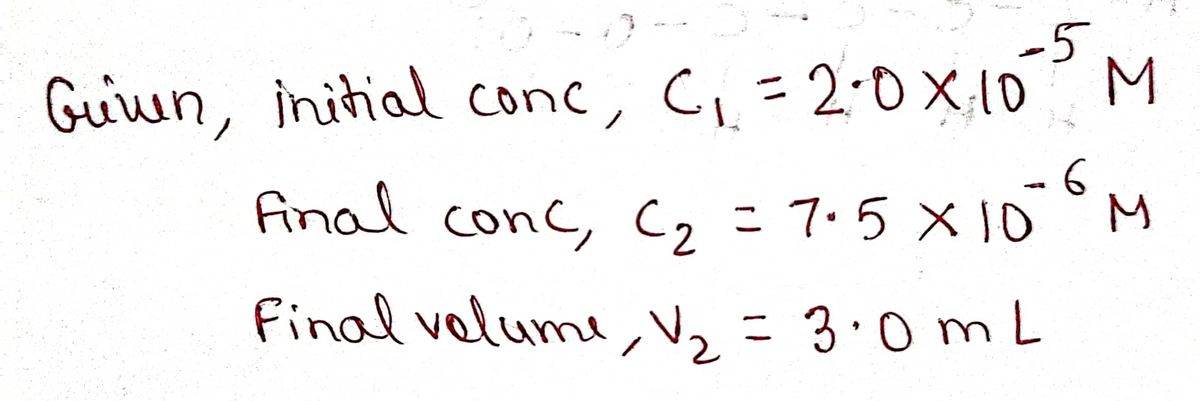 Given, initial conc, C₁ = 2.0 × 10⁻⁵ M
Final conc, C₂ = 7.5 × 10⁻⁶ M
Final volume, V₂ = 3.0 mL